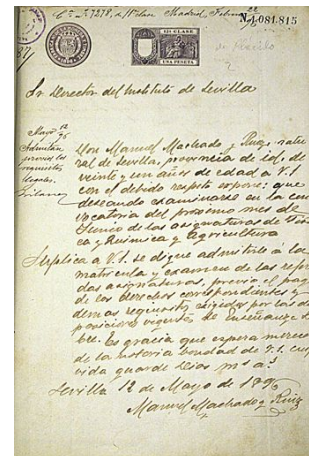 N.4.081.815
12ª CLASE
UNA PESETA
Sr. Director del Instituto de Sevilla
Mayo 12/96
Admítase
previos los
requisitos
legales.
Don Manuel Machado y Ruiz, natu
ral de Sevilla, provincia de id., de
veinte y un años de edad a V.S.
con el debido respeto expone: que
deseando examinarse en la con
vocatoria del proximo mes de
Junio de las asignaturas de Físi
ca y Quimica y Agricultura
Suplica a V.S. se digne admitirle á la
matrícula y examen de las referi
das asignaturas, previo el pago
de los derechos correspondientes y
demas requisitos exigidos por las dis
posiciones vigentes de Enseñanza li
bre. Es gracia que espera merecer
de la notoria bondad de V.S. cuya
vida guarde Dios ms. as.
Sevilla 12 de Mayo de 1896
Manuel Machado y Ruiz